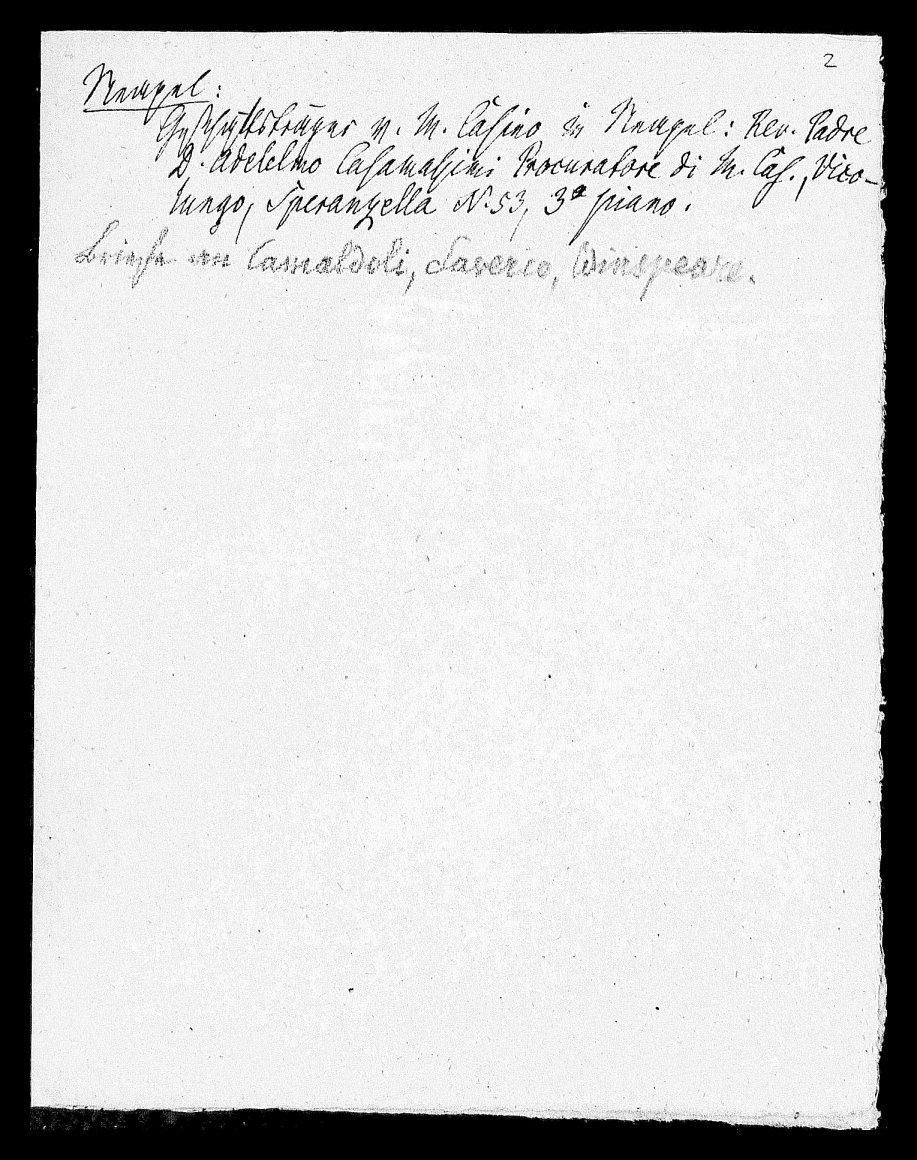 2
Neapel:
Geschäftsträger v. M. Casino in Neapel: Rev. Padre
D. Adelelmo Casamassimi Procuratore di M. Cas., Vico-
lungo, Speranzella N. 53, 3º piano.
Briefe an Camaldoli, Saverio, Winspeare.